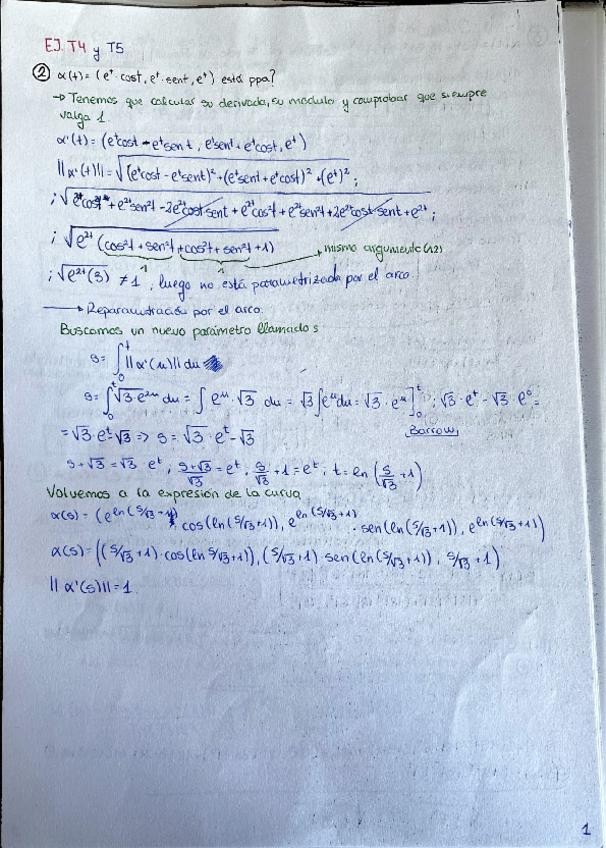 EJ. T4 y T5
② α(t) = (eᵗ·cost, eᵗ·sent, eᵗ) está ppa?
→ Tenemos que calcular su derivada, su módulo y comprobar que siempre
valga 1.
α'(t) = (eᵗcost - eᵗsent, eᵗsent + eᵗcost, eᵗ)
||α'(t)|| = √((eᵗcost - eᵗsent)² + (eᵗsent + eᵗcost)² + (eᵗ)²) ;
; √(e²ᵗcos²t + e²ᵗsen²t - 2e²ᵗcost·sent + e²ᵗcos²t + e²ᵗsen²t + 2e²ᵗcost·sent + e²ᵗ) ;
; √(e²ᵗ(cos²t + sen²t + cos²t + sen²t + 1)) → mismo argumento
1 1
; √(e²ᵗ(3)) ≠ 1, luego no está parametrizada por el arco.
→ Reparametrización por el arco.
Buscamos un nuevo parámetro llamado s
s = ∫₀ᵗ ||α'(u)|| du
s = ∫₀ᵗ √(3e²ᵘ) du = ∫ eᵘ·√3 du = √3 ∫eᵘdu = √3·eᵘ]₀ᵗ ; √3·eᵗ - √3·e⁰ =
Barrow
= √3·eᵗ - √3 => s = √3·eᵗ - √3
s + √3 = √3·eᵗ ; (s+√3)/√3 = eᵗ ; s/√3 + 1 = eᵗ ; t = ln(s/√3 + 1)
Volvemos a la expresión de la curva
α(s) = (e^(ln(s/√3+1))·cos(ln(s/√3+1)), e^(ln(s/√3+1))·sen(ln(s/√3+1)), e^(ln(s/√3+1)))
α(s) = ((s/√3+1)·cos(ln s/√3+1)), (s/√3+1)·sen(ln(s/√3+1)), s/√3+1)
||α'(s)|| = 1
1